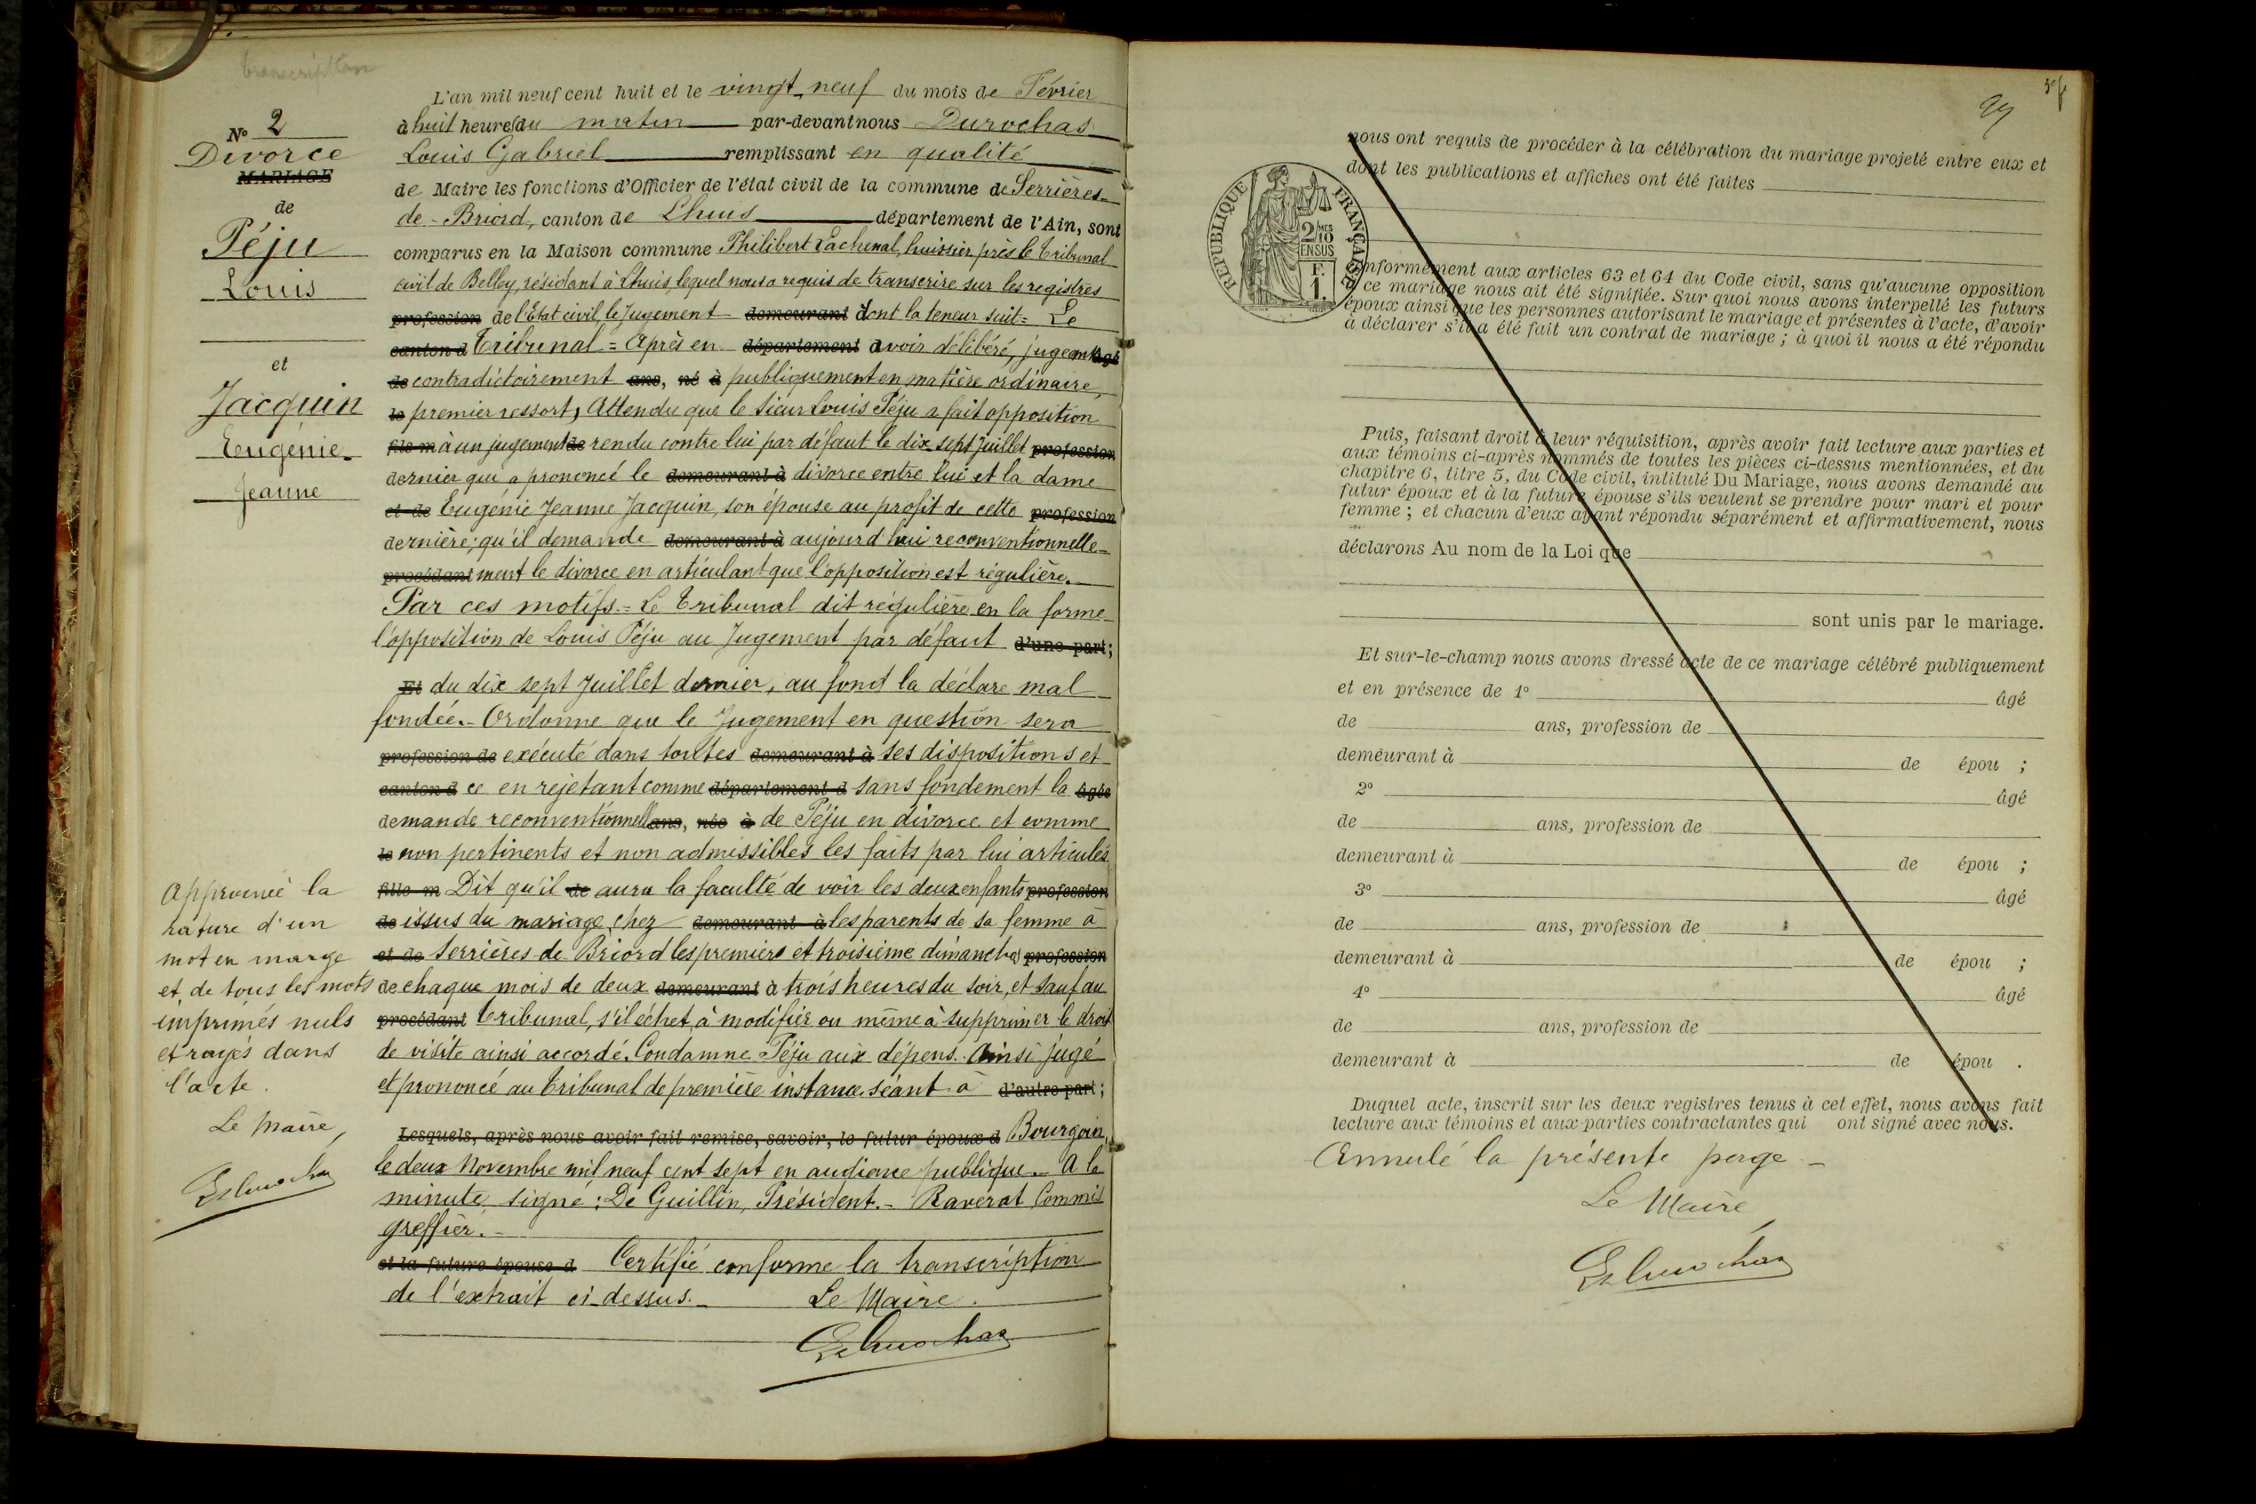 transcription
N° 2
Divorce
MARIAGE
de
Péju
Louis
et
Jacquin
Eugénie
Jeanne
L'an mil neuf cent huit et le vingt-neuf du mois de Février
à huit heures du matin par-devant nous Durochas
Louis Gabriel remplissant en qualité
de Maire les fonctions d'Officier de l'état civil de la commune de Serrières-
de-Briord, canton de Lhuis département de l'Ain, sont
comparus en la Maison commune Philibert Lachenal, huissier près le Tribunal
civil de Belley, résidant à Lhuis, lequel nous a requis de transcrire sur les registres
profession de l'Etat civil, le Jugement demeurant dont la teneur suit = Le
canton d Tribunal = Après en département avoir délibéré, jugeant âgé
de contradictoirement ans, né à publiquement en matière ordinaire,
le premier ressort, Attendu que le sieur Louis Péju a fait opposition
fils m à un jugement de rendu contre lui par défaut le dix-sept Juillet profession
dernier qui a prononcé le demeurant à divorce entre lui et la dame
et de Eugénie Jeanne Jacquin, son épouse au profit de cette profession
dernière; qu'il demande demeurant à aujourd'hui reconventionnelle-
procédant ment le divorce en articulant que l'opposition est régulière.
Par ces motifs.= Le Tribunal dit régulière en la forme
l'opposition de Louis Péju au Jugement par défaut d'une part;
Et du dix sept Juillet dernier, au fond la déclare mal
fondée.- Ordonne que le Jugement en question sera
profession de exécuté dans toutes demeurant à ses dispositions et
canton d ce en rejetant comme département d sans fondement la âgée
demande reconventionnelle ans, née à de Péju en divorce et comme
le non pertinents et non admissibles les faits par lui articulés
fille m Dit qu'il de aura la faculté de voir les deux enfants profession
de issus du mariage, chez demeurant à les parents de sa femme à
et de Serrières de Briord les premiers et troisième dimanches profession
de chaque mois de deux demeurant à trois heures du soir, et sauf au
procédant Tribunal, s'il échet, à modifier ou même à supprimer le droit
de visite ainsi accordé. Condamne Péju aux dépens. Ainsi jugé
et prononcé au Tribunal de première instance séant à d'autre part;
Lesquels, après nous avoir fait remise, savoir, le futur époux d Bourgoin,
le deux Novembre mil neuf cent sept en audience publique.- A la
minute signé: De Guillin, Président.- Raverat Commis
greffier.-
et la future épouse d Certifié conforme la transcription
de l'extrait ci-dessus.- Le Maire.
Approuvé la
rature d'un
mot en marge
et de tous les mots
imprimés nuls
et rayés dans
l'acte.
Le Maire,
99
nous ont requis de procéder à la célébration du mariage projeté entre eux et
dont les publications et affiches ont été faites
REPUBLIQUE FRANÇAISE
2/10 MES
EN SUS
F.
1.
conformément aux articles 63 et 64 du Code civil, sans qu'aucune opposition
à ce mariage nous ait été signifiée. Sur quoi nous avons interpellé les futurs
époux ainsi que les personnes autorisant le mariage et présentes à l'acte, d'avoir
à déclarer s'il a été fait un contrat de mariage; à quoi il nous a été répondu
Puis, faisant droit à leur réquisition, après avoir fait lecture aux parties et
aux témoins ci-après nommés de toutes les pièces ci-dessus mentionnées, et du
chapitre 6, titre 5, du Code civil, intitulé Du Mariage, nous avons demandé au
futur époux et à la future épouse s'ils veulent se prendre pour mari et pour
femme; et chacun d'eux ayant répondu séparément et affirmativement, nous
déclarons Au nom de la Loi que
sont unis par le mariage.
Et sur-le-champ nous avons dressé acte de ce mariage célébré publiquement
et en présence de 1° âgé
de ans, profession de
demeurant à de épou ;
2° âgé
de ans, profession de
demeurant à de épou ;
3° âgé
de ans, profession de
demeurant à de épou ;
4° âgé
de ans, profession de
demeurant à de épou .
Duquel acte, inscrit sur les deux registres tenus à cet effet, nous avons fait
lecture aux témoins et aux parties contractantes qui ont signé avec nous.
Annulé la présente page -
Le Maire